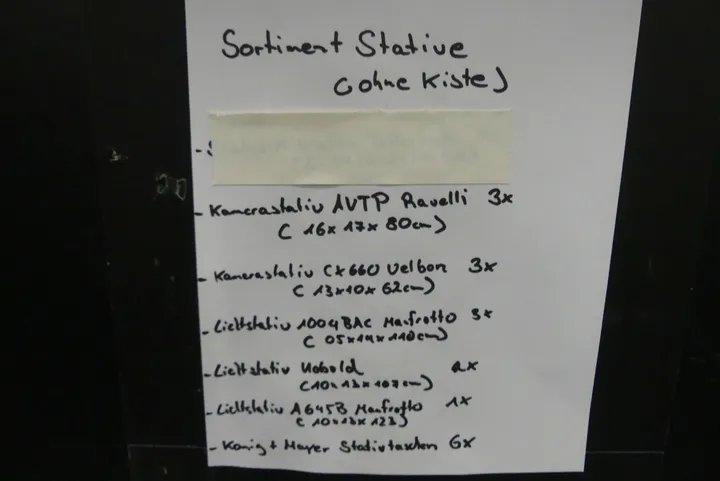 Sortiment Stative
(ohne Kiste)
- Kamerastativ AVTP Ravelli 3x
( 16x 17x 80cm)
- Kamerastativ CX660 Velbon 3x
( 13x10x 62cm)
- Lichtstativ 1004BAC Manfrotto 3x
( 05x14x110cm)
- Lichtstativ Kobold
(10x13x107cm)
- Lichtstativ A645B Manfrotto 1x
( 10x13x123)
- König + Mayer Stativtaschen 6x